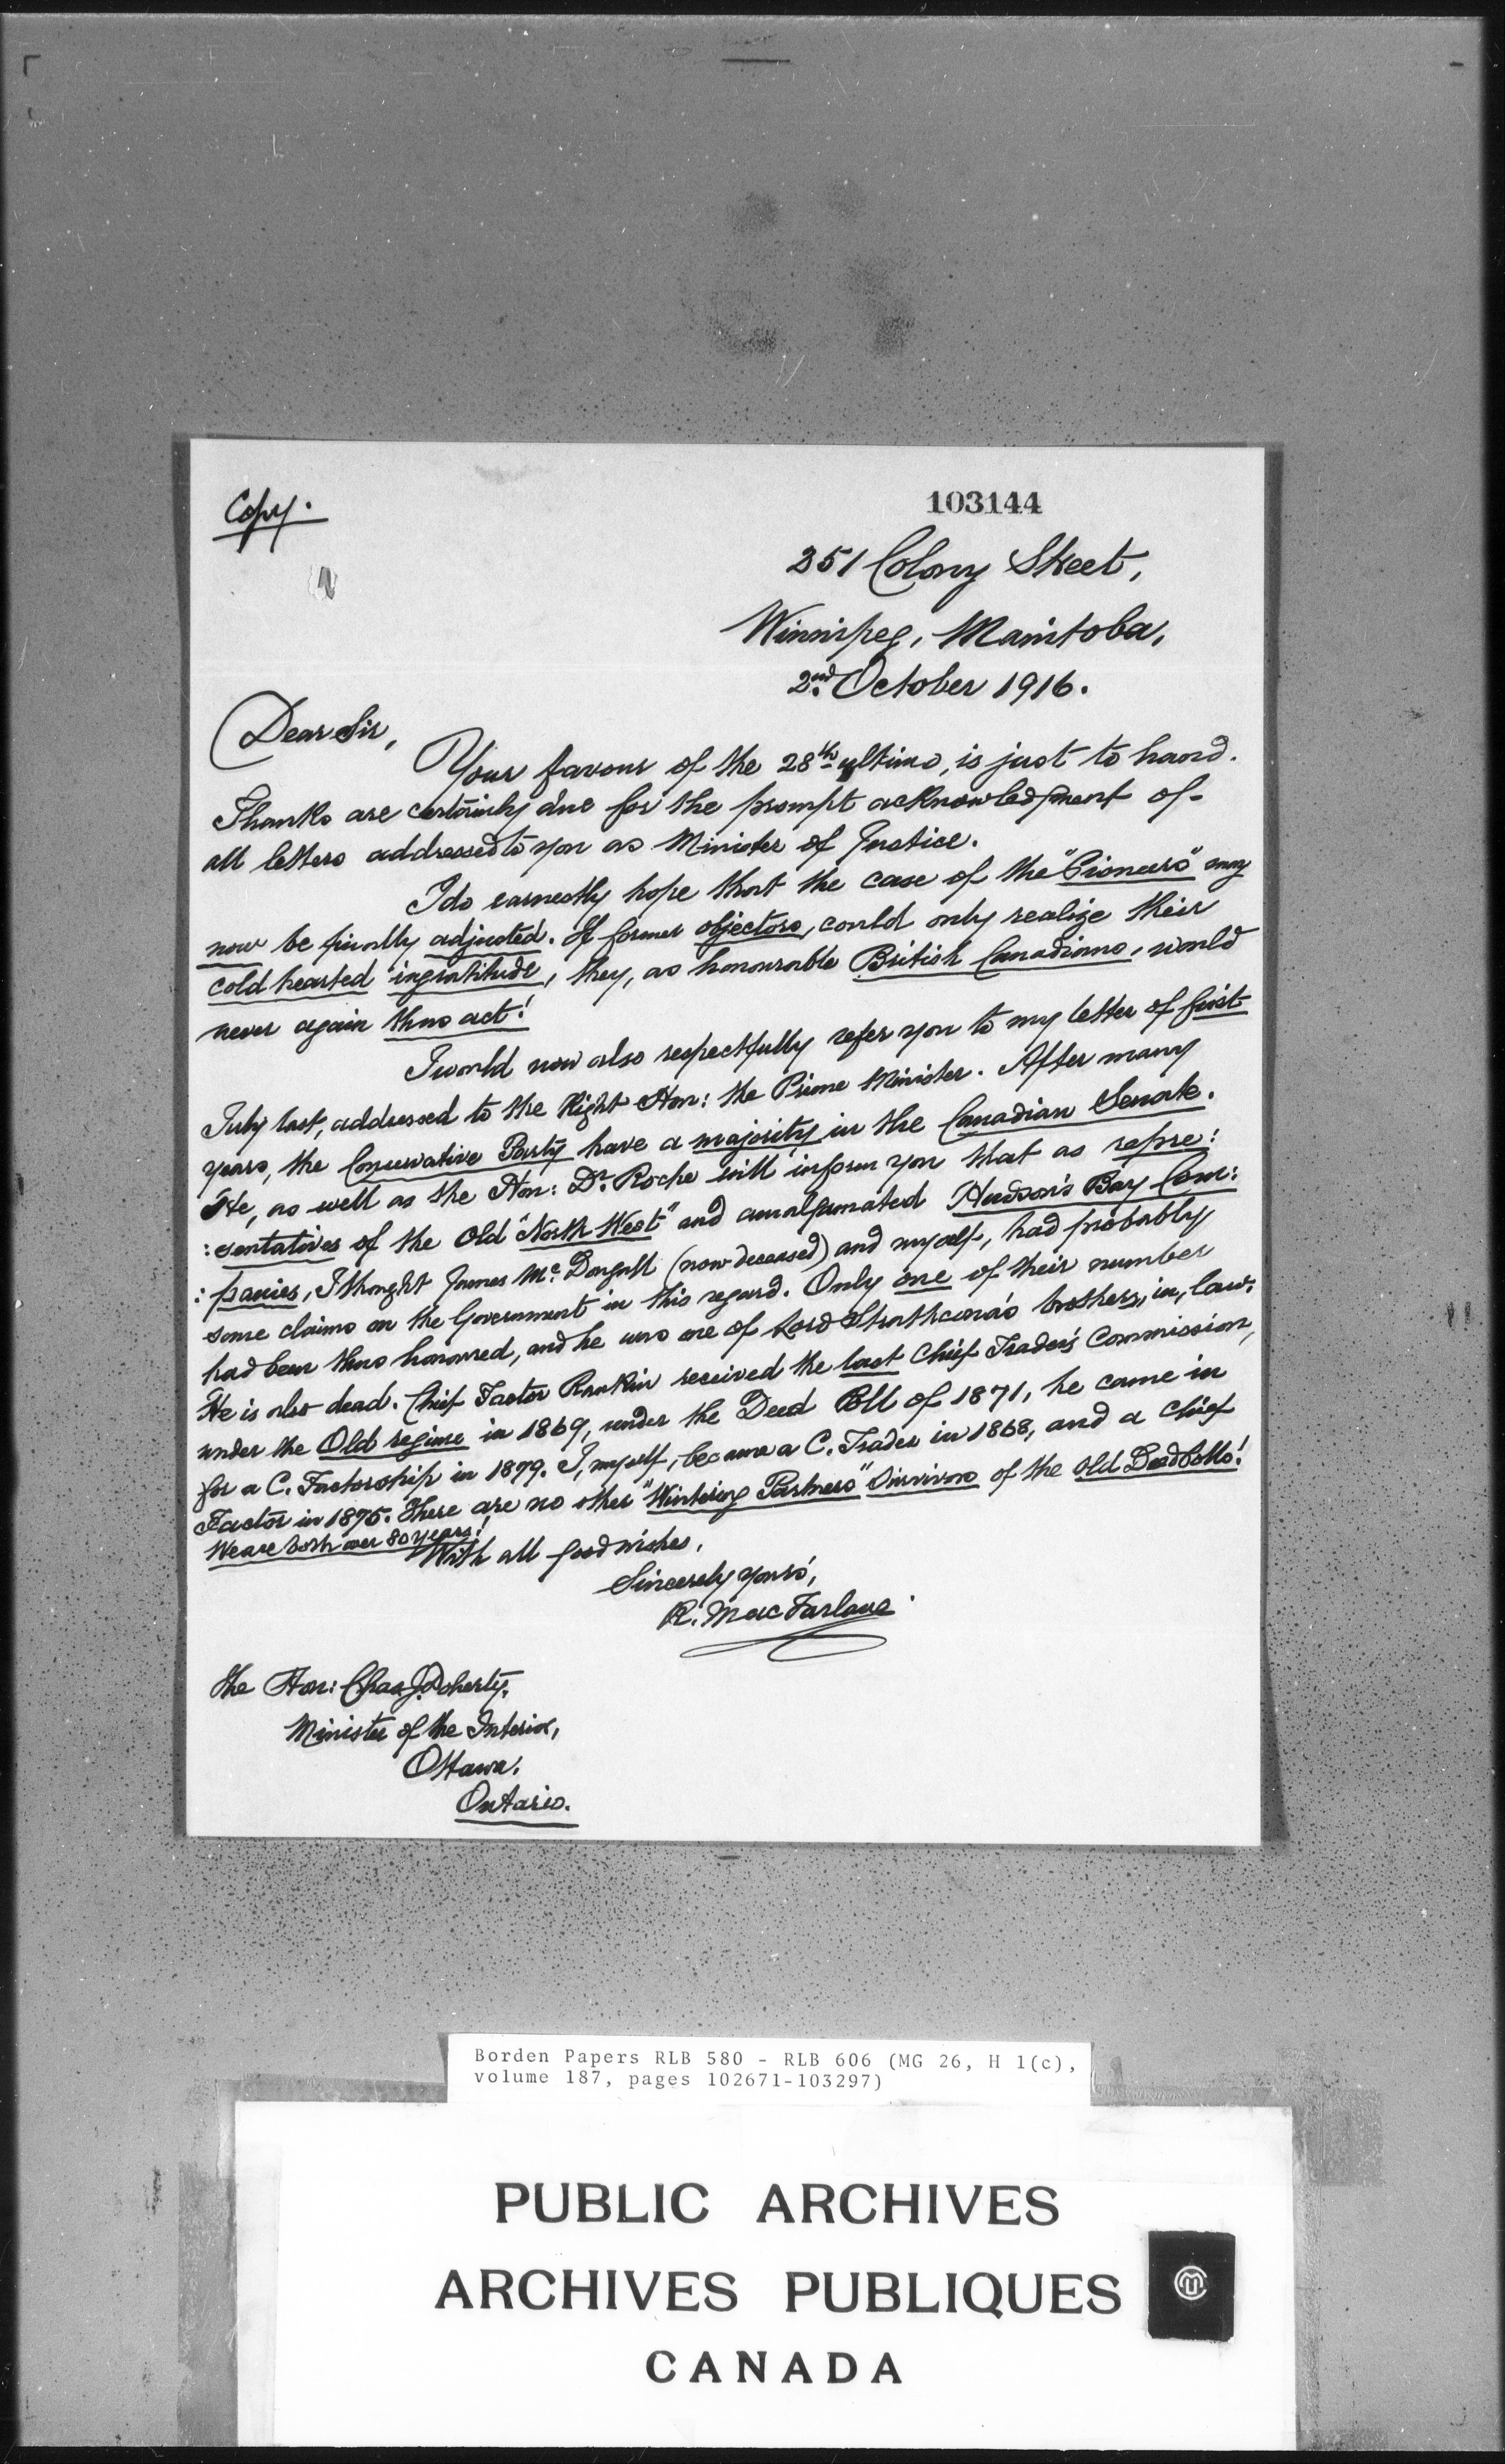 Copy.
103144
251 Colony Street,
Winnipeg, Manitoba,
2nd October 1916.
Dear Sir,
Your favour of the 28th ultimo, is just to hand.
Thanks are certainly due for the prompt acknowledgment of
all letters addressed to you as Minister of Justice.
I do earnestly hope that the case of the "Pioneers" may
now be finally adjusted. If former objectors, could only realize their
cold hearted ingratitude, they, as honourable British Canadians, would
never again thus act!
I would now also respectfully refer you to my letter of first
July last, addressed to the Right Hon: the Prime Minister. After many
years, the Conservative Party have a majority in the Canadian Senate.
He, as well as the Hon: Dr. Roche will inform you that as repre:
:sentatives of the Old "North West" and amalgamated Hudson's Bay Com:
:panies, I thought James Mc. Dougall (now deceased) and myself, had probably
some claims on the Government in this regard. Only one of their number
had been thus honoured, and he was one of Lord Strathcona's brothers, in, law.
He is also dead. Chief Factor Rankin received the last Chief Trader's Commission,
under the Old regime in 1869, under the Deed Poll of 1871, he came in
for a C. Factorship in 1879. I, myself, became a C. Trader in 1868, and a Chief
Factor in 1875. There are no other "Wintering Partners" Survivors of the Old Deed Polls!
We are both over 80 years!
With all good wishes,
Sincerely yours,
R. MacFarlane.
The Hon: Chas. J. Doherty,
Minister of the Interior,
Ottawa.
Ontario.
Borden Papers RLB 580 - RLB 606 (MG 26, H 1(c),
volume 187, pages 102671-103297)
PUBLIC ARCHIVES
ARCHIVES PUBLIQUES
CANADA